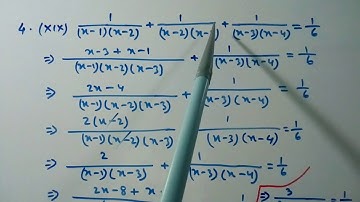 4. (xix) 1/((x-1)(x-2)) + 1/((x-2)(x- + 1/((x-3)(x-4)) = 1/6
⇒ (x-3 + x-1)/((x-1)(x-2)(x-3)) + 1/((x-3)(x-4)) = 1/6
⇒ (2x-4)/((x-1)(x-2)(x-3)) + 1/((x-3)(x-4)) = 1/6
⇒ 2(x-2)/((x-1)(x-2)(x-3)) 1/((x-3)(x-4)) = 1/6
⇒ 2/((x-1)(x-3)) 1/((x-3)(x-4)) = 1/6
⇒ 2x-8 + x 1 ⇒ 3 1